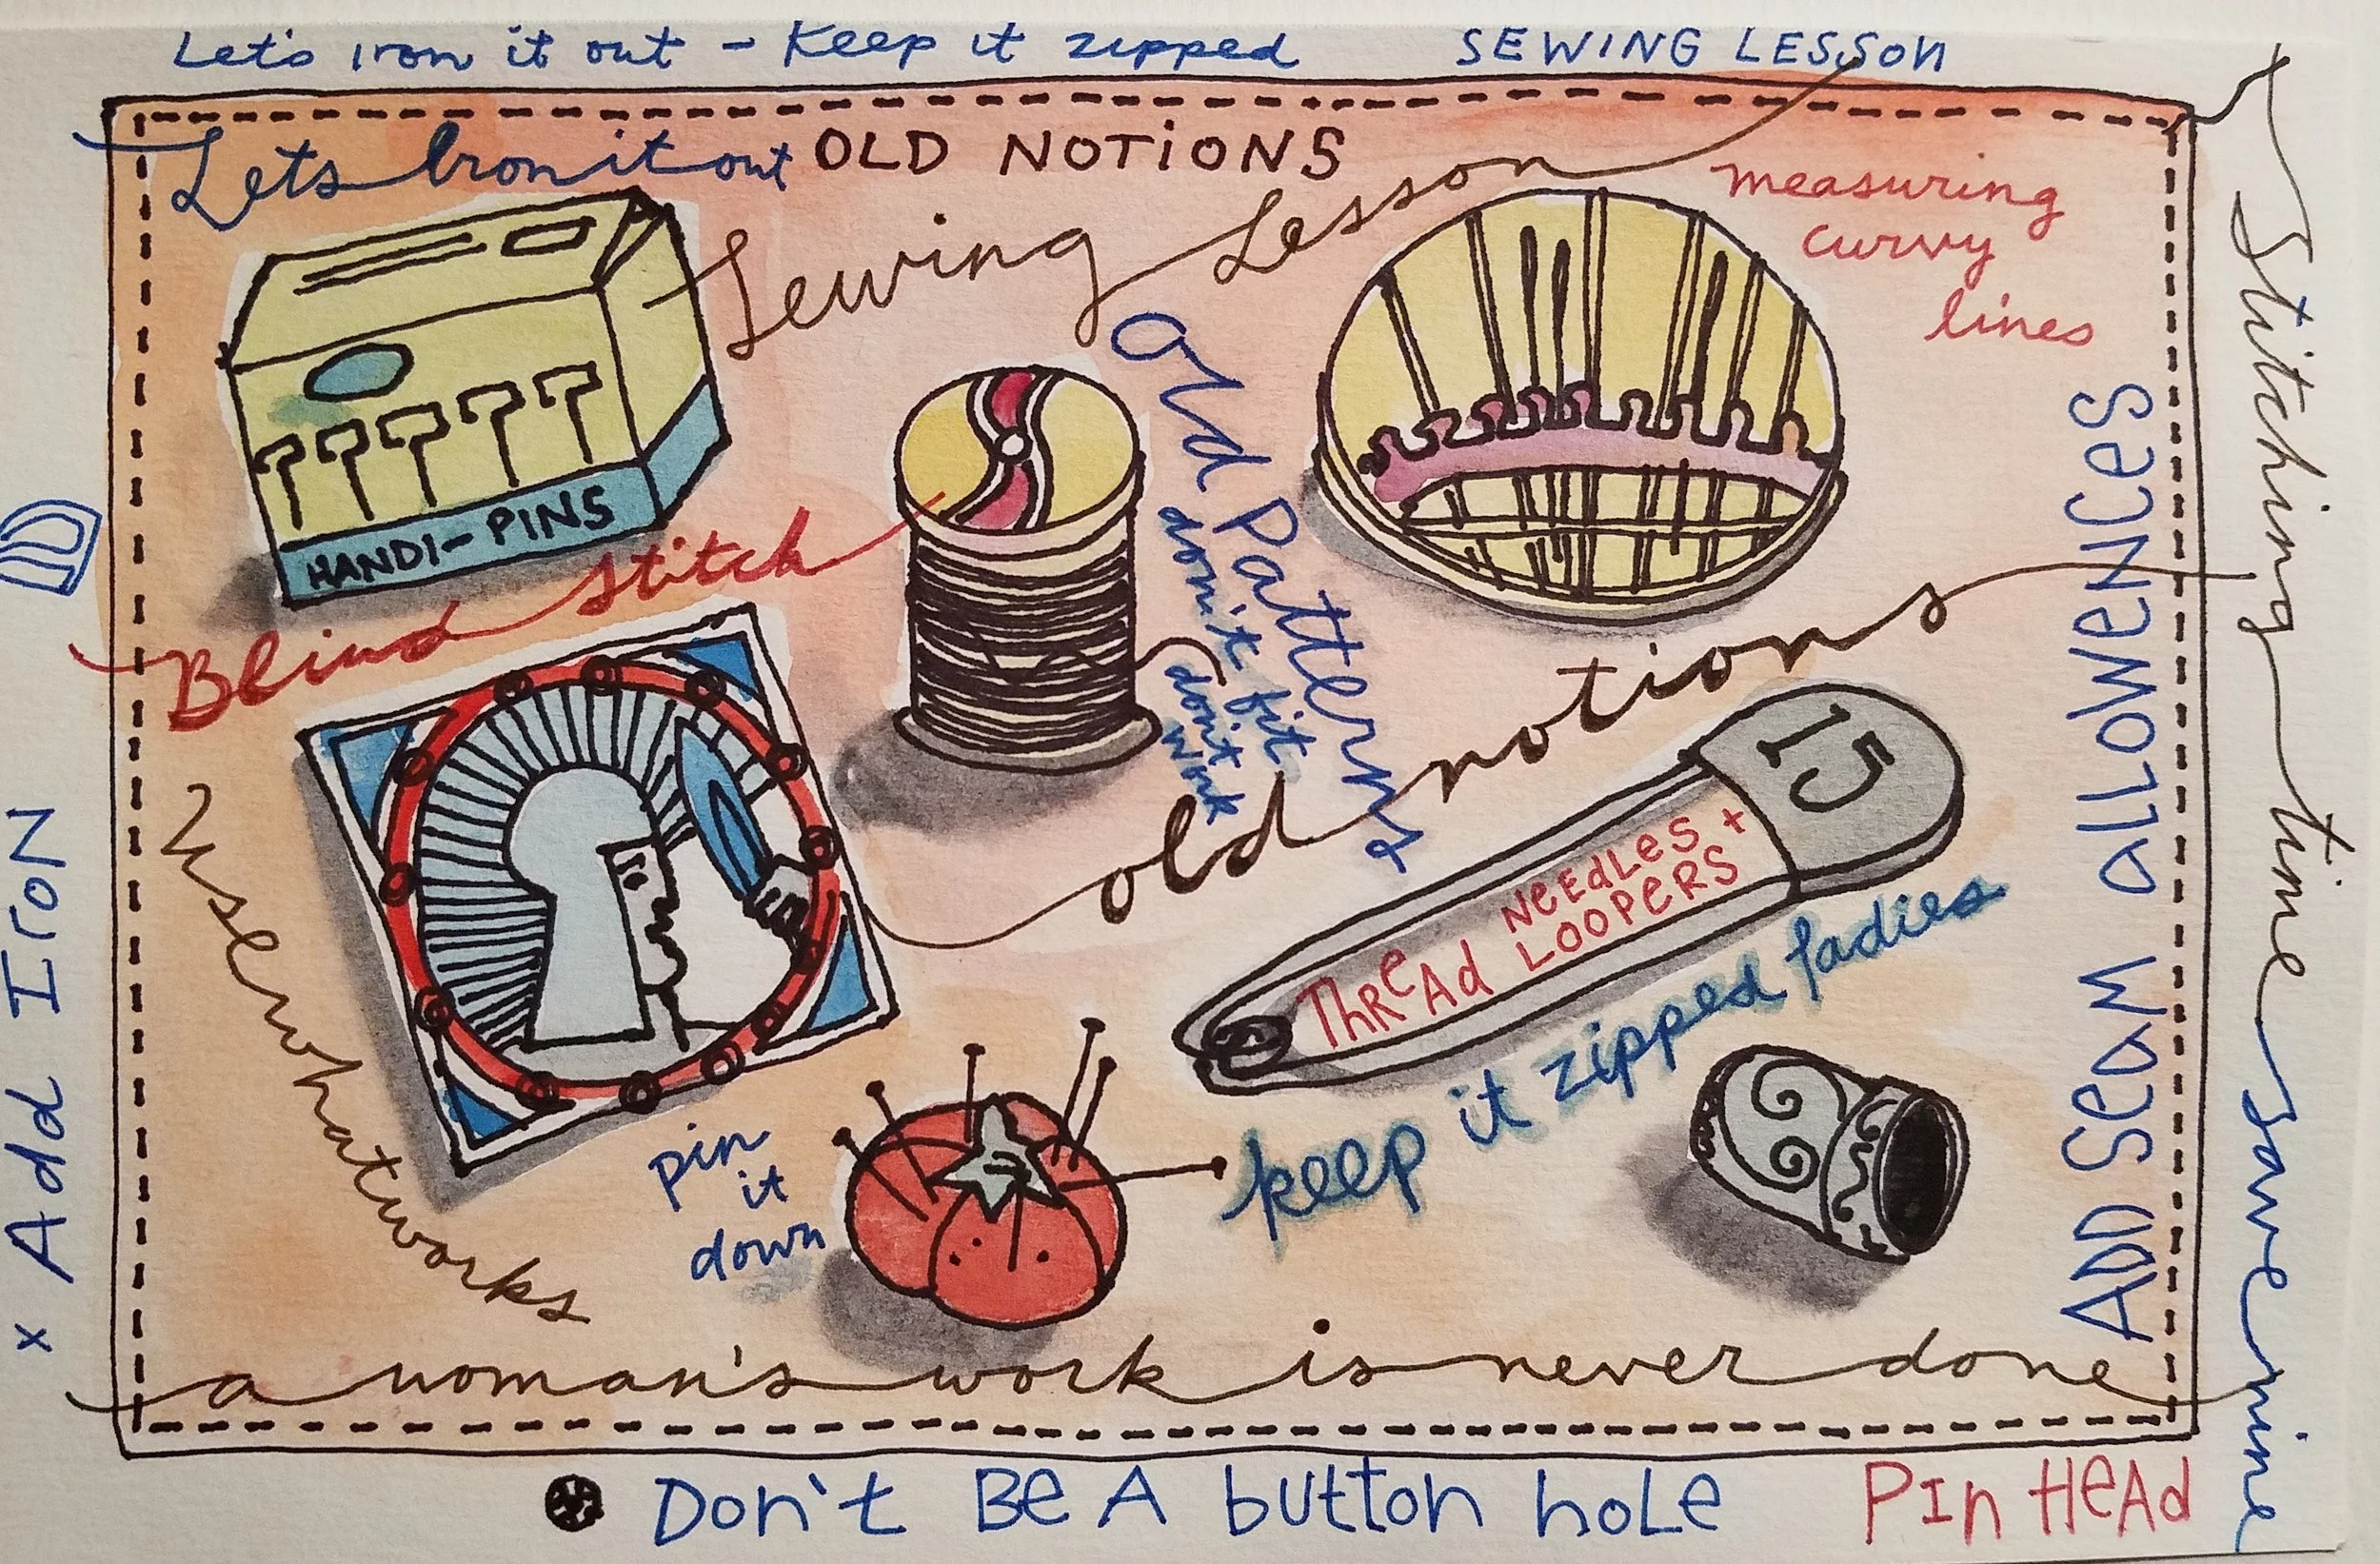 Let's iron it out - Keep it zipped
SEWING LESSON
Lets Iron it out
OLD NOTIONS
Sewing Lesson
measuring
curvy
lines
HANDI-PINS
Blind stitch
Old Patterns
don't fit
don't
work
old notions
15
THReAd
NeedLeS +
LOOPeRS
keep it zipped ladies
Use what works
pin
it
down
ADD SeaM allOWeNCeS
Stitching time save nine
x Add IroN
a woman's work is never done
Don't Be A button hoLe
PIn HeAd